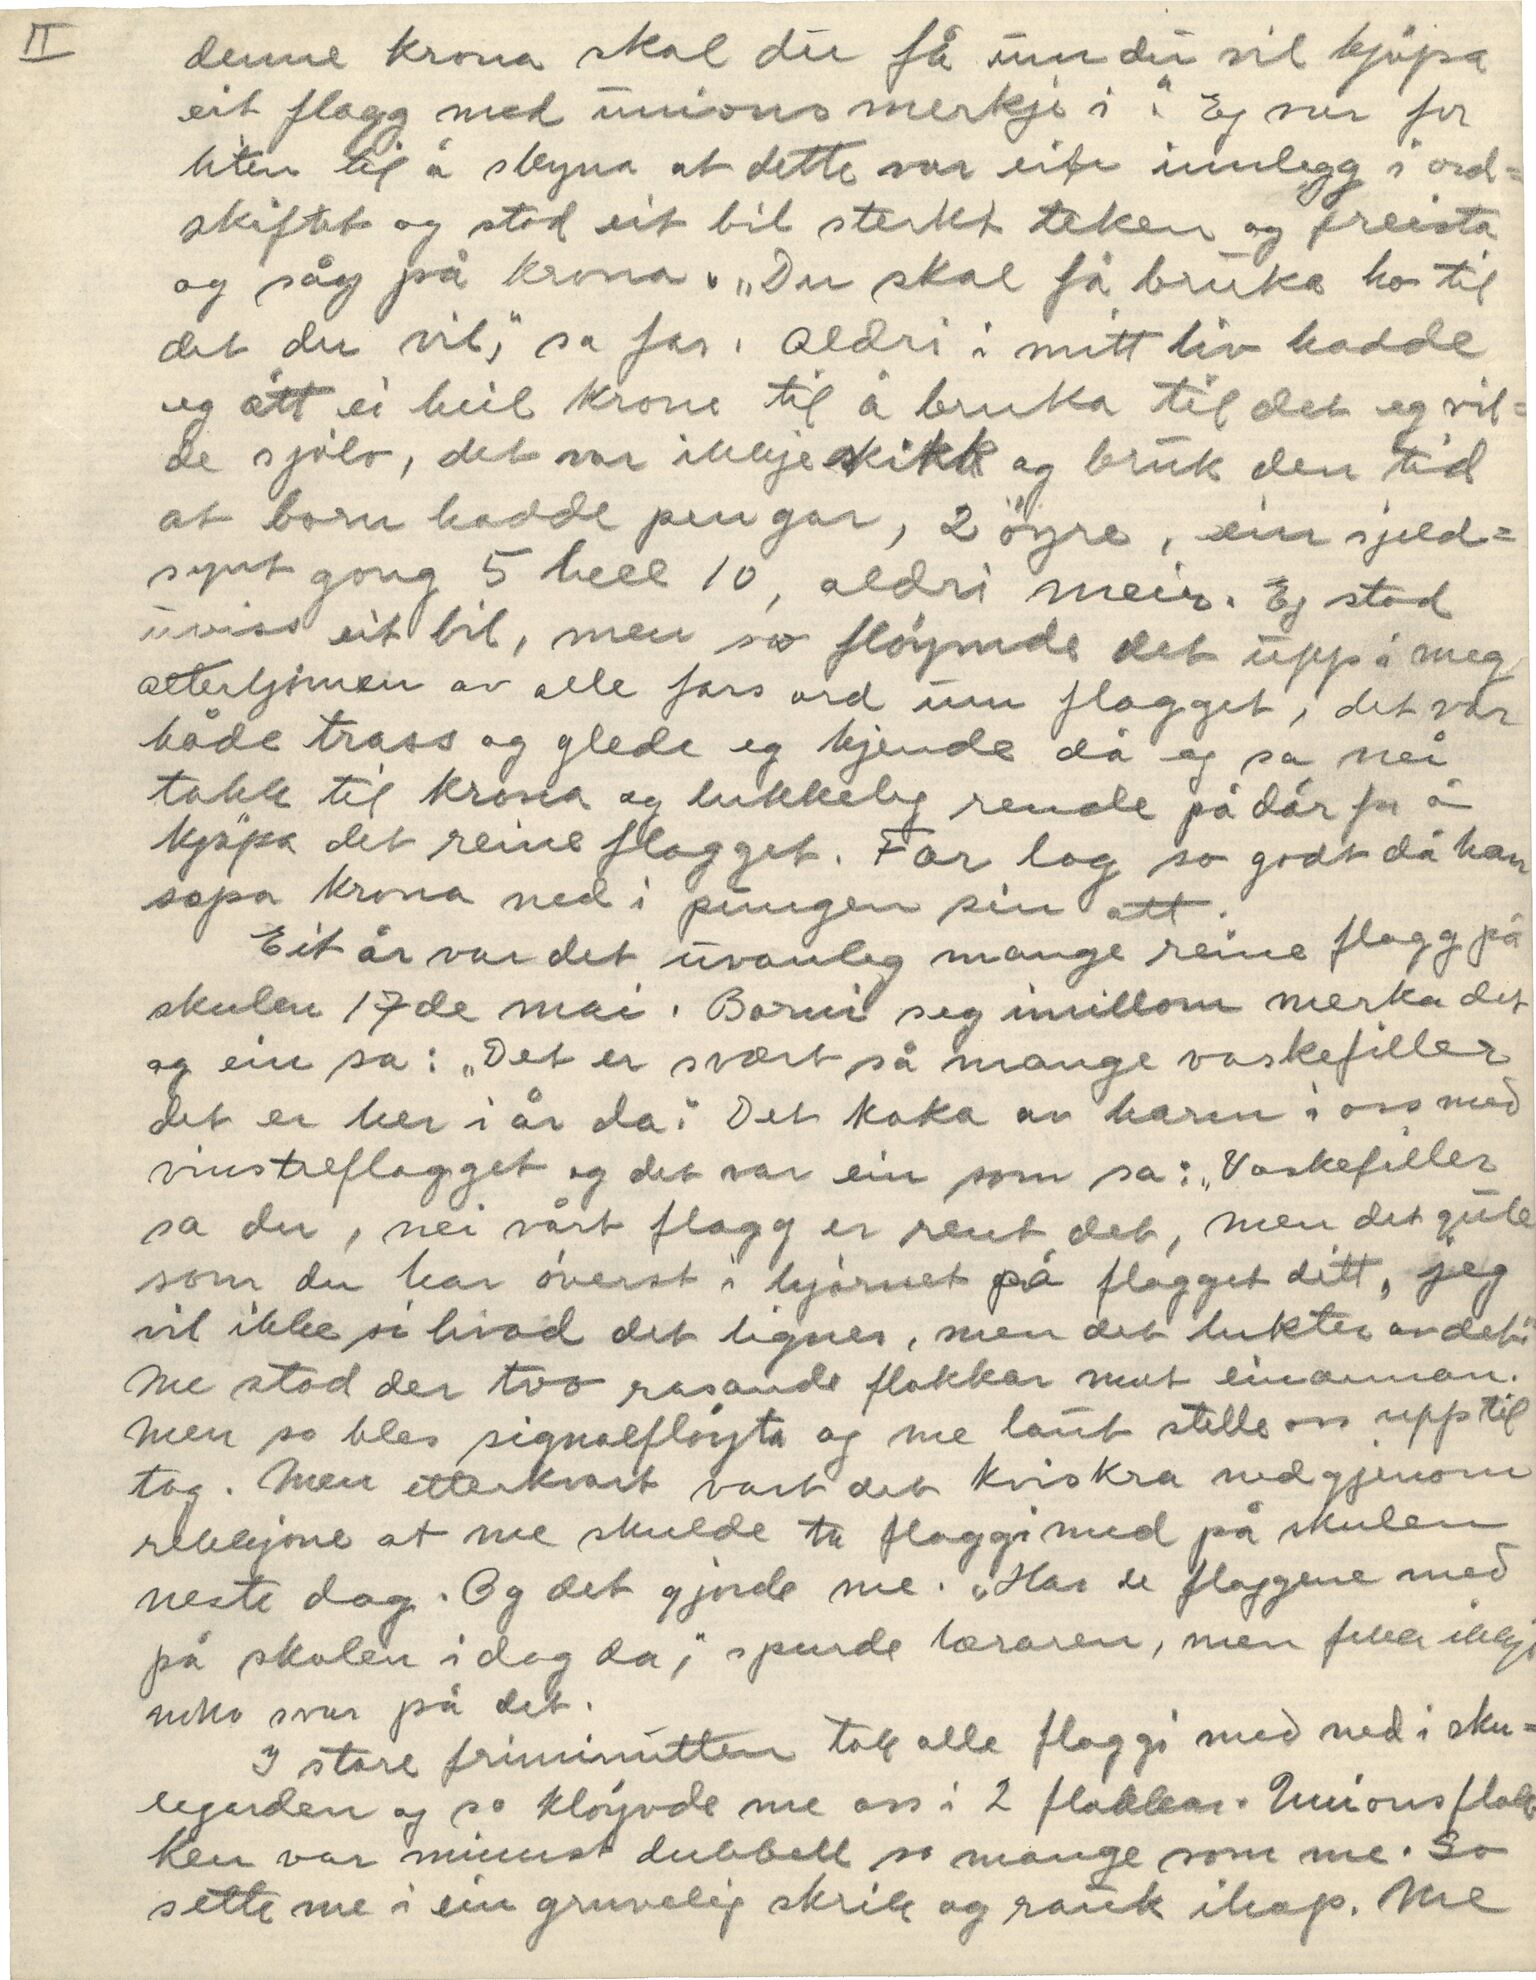 II
denne krona skal du få um du vil kjöpa
eit flagg med unionsmerkje i." Eg var for
liten til å skyna at dette var eit innlegg i ord=
skiftet og stod eit bil sterkt teken og freista
og såg på krona. „Du skal få bruka ho til
det du vil," sa far. Aldri i mitt liv hadde
eg ått ei heil krone til å bruka til det eg vil=
de sjølv, det var ikkje skikk og bruk den tid
at born hadde pengar, 2 öyre, ein sjeld=
synt gong 5 hell 10, aldri meir. Eg stod
uviss eit bil, men so flöymde det upp i meg
atterljomen av alle fars ord um flagget, det var
både trass og glede eg kjende då eg sa nei
takk til krona og lukkeleg rende på dör for å
kjöpa det reine flagget. Far log so godt då han
slapp krona ned i pungen sin att.
Eit år var det uvanleg mange reine flagg på
skulen 17de mai. Borni seg imillom merka det
og ein sa: „Det er svært så mange vaskefiller
det er her i år da." Det koka av harm i oss med
vinstreflagget og det var ein som sa: „Vaskefiller
sa du, nei vårt flagg er rent det, men det gule
som du har överst i hjörnet på flagget ditt, jeg
vil ikke si hvad det ligner, men det lukter av det."
Me stod der tvo rasande flokkar mot einannan.
Men so bles signalflöyta og me laut stille oss upp til
tog. Men etterkvart vart det kviskra ned gjenom
rekkjone at me skulde ta flaggi med på skulen
neste dag. Og det gjorde me. „Har de flaggene med
på skolen idag da," spurde læraren, men fekk ikkje
noko svar på det.
I store friminutten tok alle flaggi med ned i sku=
legarden og so klöyvde me oss i 2 flokkar. Unionsflok
ken var minst dubbelt so mange som me. So
sette me i ein gruveleg skrik og rauk ihop. Me